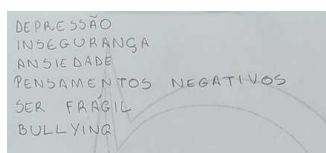 DEPRESSÃO
INSEGURANÇA
ANSIEDADE
PENSAMENTOS NEGATIVOS
SER FRÁGIL
BULLYING